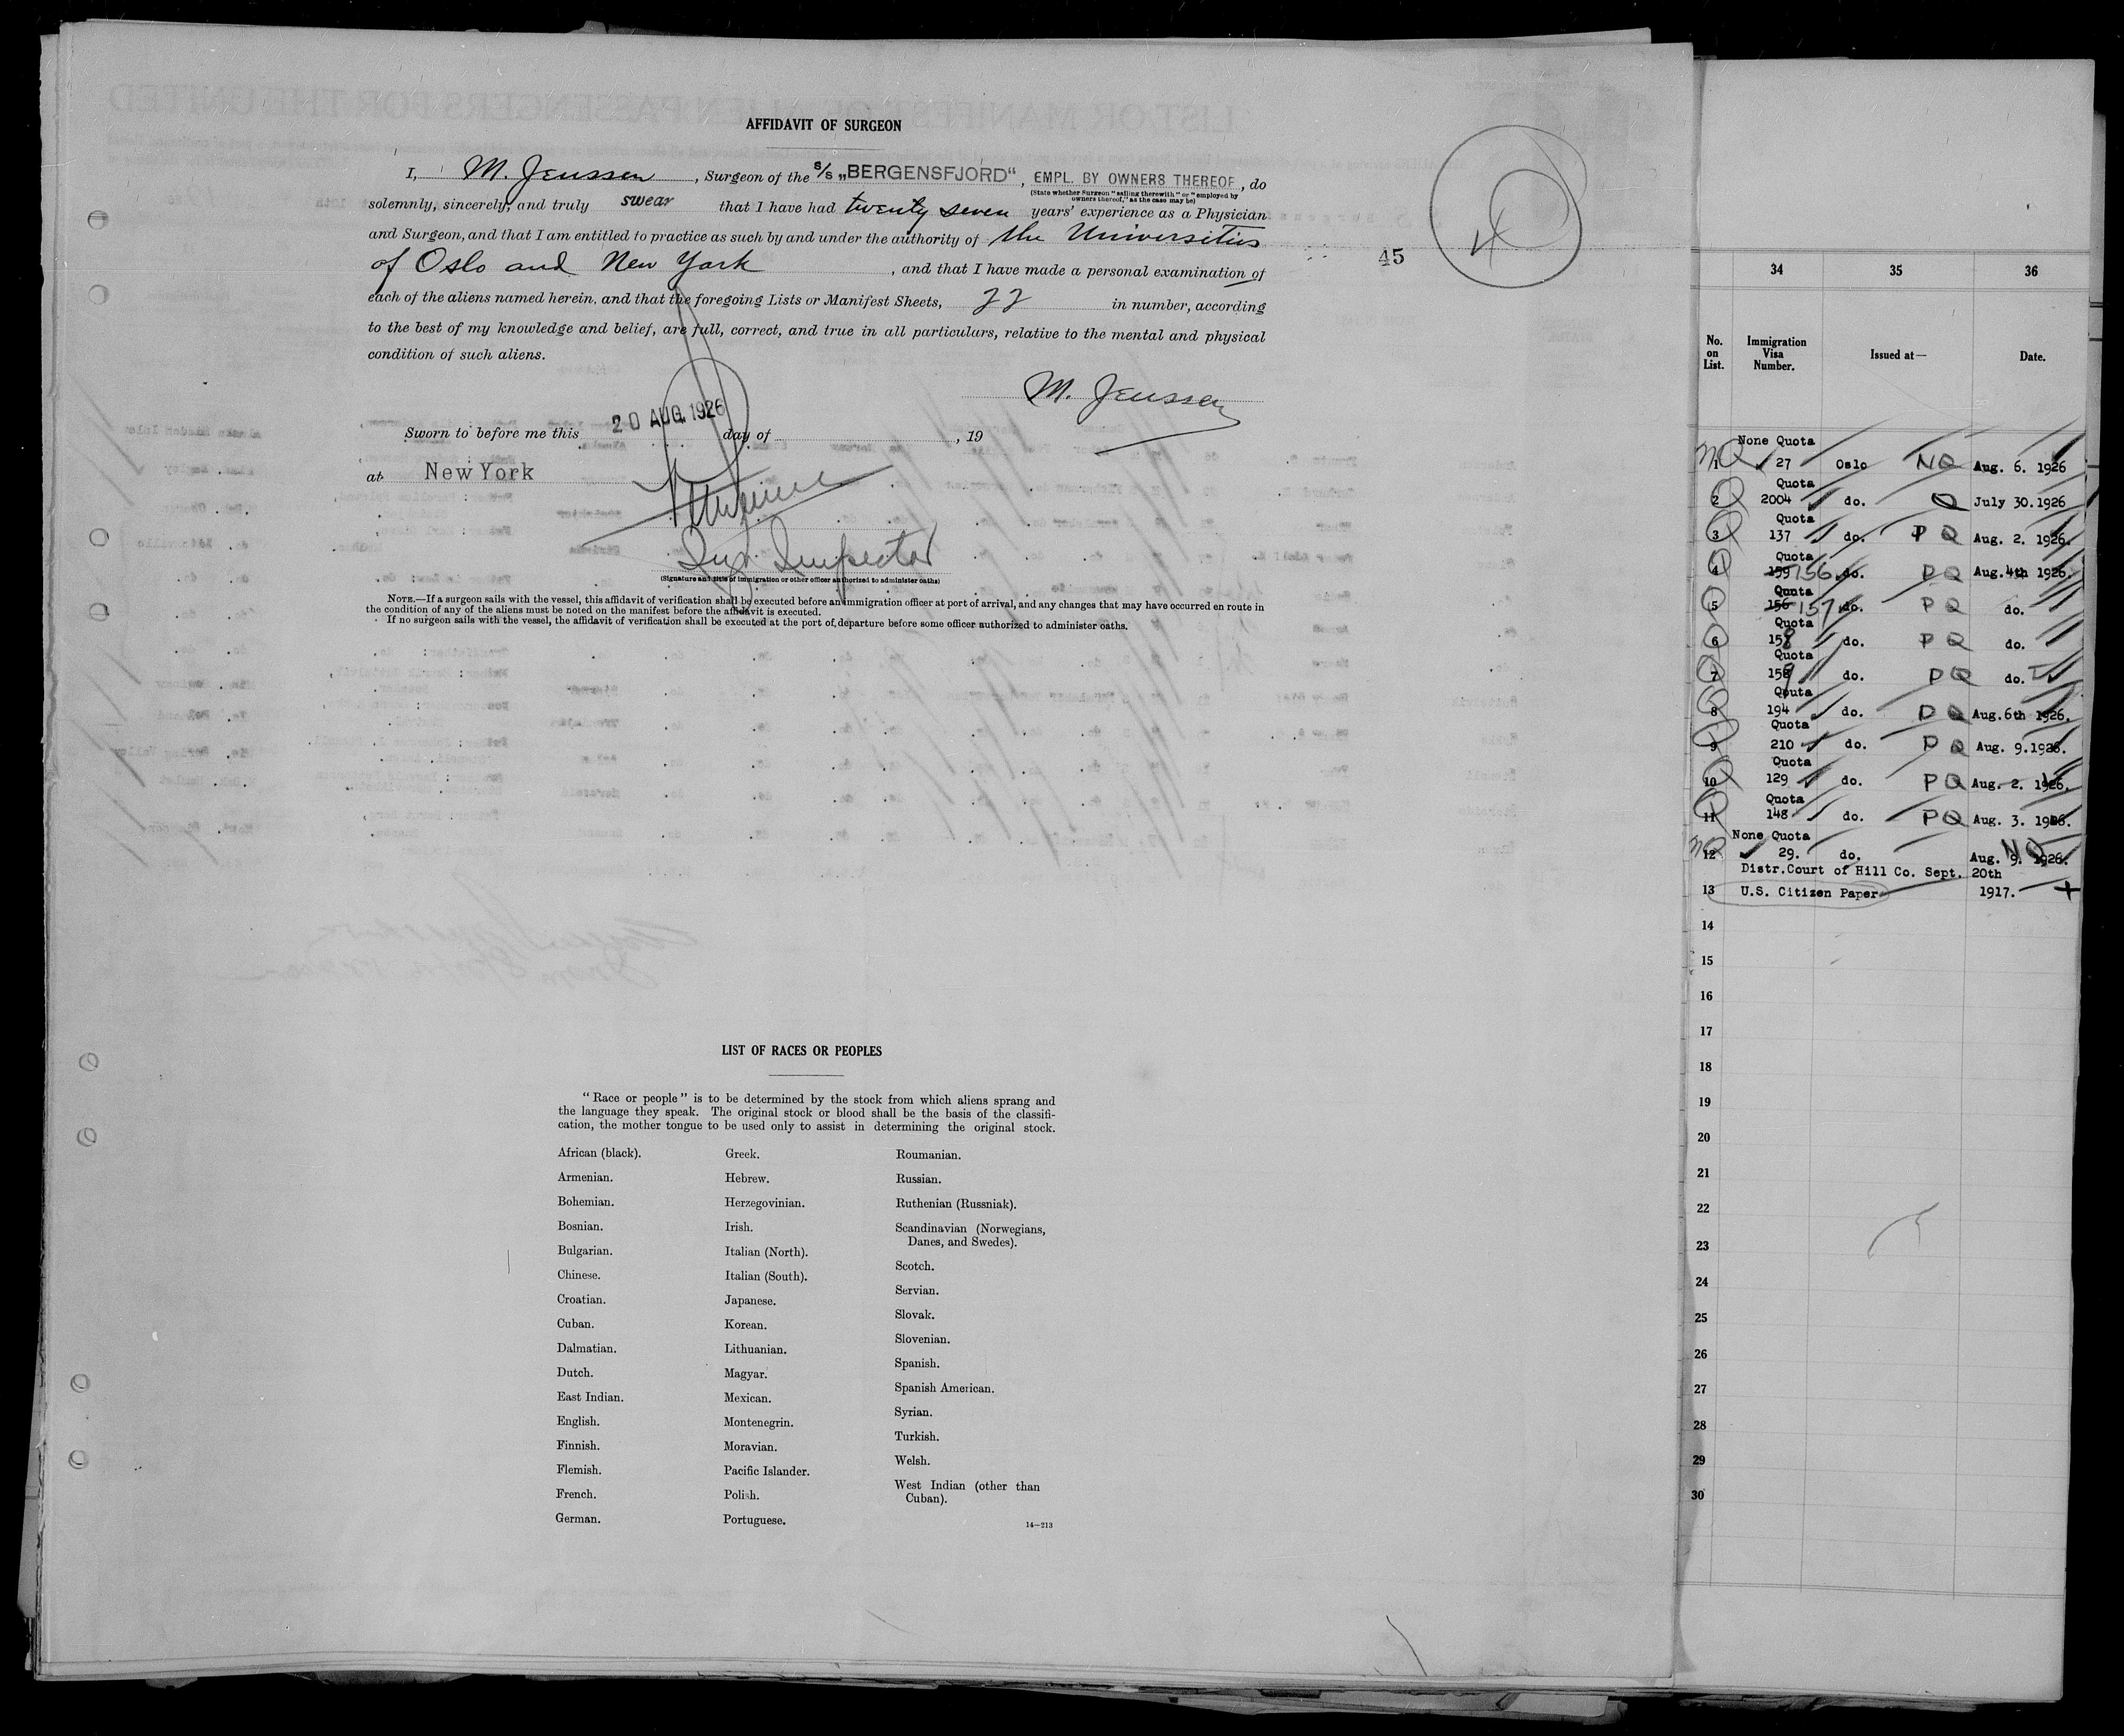 AFFIDAVIT OF SURGEON
I, M. Jenssen, Surgeon of the S/S „BERGENSFJORD“, EMPL. BY OWNERS THEREOF, do
(State whether Surgeon "sailing therewith" or "employed by
owners thereof," as the case may be)
solemnly, sincerely, and truly swear that I have had twenty seven years' experience as a Physician
and Surgeon, and that I am entitled to practice as such by and under the authority of the Universities
of Oslo and New York, and that I have made a personal examination of
each of the aliens named herein, and that the foregoing Lists or Manifest Sheets, 22 in number, according
to the best of my knowledge and belief, are full, correct, and true in all particulars, relative to the mental and physical
condition of such aliens.
M. Jenssen
20 AUG. 1926
Sworn to before me this day of , 19
at New York
Inspector
(Signature and title of immigration or other officer authorized to administer oaths)
NOTE.—If a surgeon sails with the vessel, this affidavit of verification shall be executed before an immigration officer at port of arrival, and any changes that may have occurred en route in
the condition of any of the aliens must be noted on the manifest before the affidavit is executed.
If no surgeon sails with the vessel, the affidavit of verification shall be executed at the port of departure before some officer authorized to administer oaths.
45
4
LIST OF RACES OR PEOPLES
"Race or people" is to be determined by the stock from which aliens sprang and
the language they speak. The original stock or blood shall be the basis of the classifi-
cation, the mother tongue to be used only to assist in determining the original stock.
African (black).
Armenian.
Bohemian.
Bosnian.
Bulgarian.
Chinese.
Croatian.
Cuban.
Dalmatian.
Dutch.
East Indian.
English.
Finnish.
Flemish.
French.
German.
Greek.
Hebrew.
Herzegovinian.
Irish.
Italian (North).
Italian (South).
Japanese.
Korean.
Lithuanian.
Magyar.
Mexican.
Montenegrin.
Moravian.
Pacific Islander.
Polish.
Portuguese.
Roumanian.
Russian.
Ruthenian (Russniak).
Scandinavian (Norwegians,
Danes, and Swedes).
Scotch.
Servian.
Slovak.
Slovenian.
Spanish.
Spanish American.
Syrian.
Turkish.
Welsh.
West Indian (other than
Cuban).
14—213
34 35 36
No. on List. Immigration Visa Number. Issued at— Date.
None Quota
NQ 1 27 Oslo NQ Aug. 6. 1926
Quota
2 2004 do. Q July 30.1926
Quota
3 137 do. P Q Aug. 2. 1926.
Quota
4 159 156 do. P Q Aug. 4th 1926.
Quota
5 156 157 do. P Q do.
Quota
6 158 do. P Q do.
Quota
7 159 do. P Q do.
Qouta
8 194 do. P Q Aug.6th 1926.
Quota
9 210 do. P Q Aug. 9.1926.
Quota
10 129 do. P Q Aug. 2. 1926.
Quota
11 148 do. P Q Aug. 3. 1926.
None Quota
NQ 12 29. do. NQ Aug. 9. 1926.
Distr.Court of Hill Co. Sept. 20th
13 U.S. Citizen Paper 1917.
14
15
16
17
18
19
20
21
22
23
24
25
26
27
28
29
30